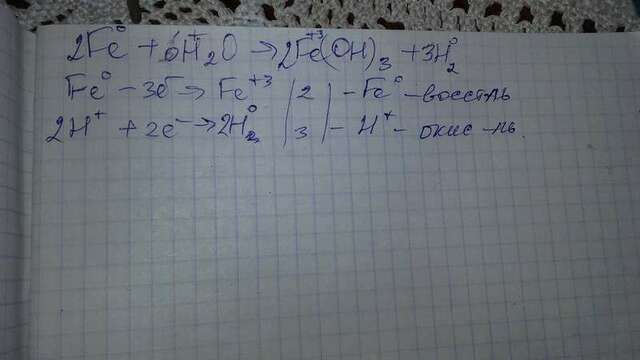 2Fe⁰ + 6H⁺₂O → 2Fe⁺³(OH)₃ + 3H₂⁰
Fe⁰ – 3e⁻ → Fe⁺³ | 2 | – Fe⁰ – восст-ль
2H⁺ + 2e⁻ → 2H₂⁰ | 3 | – H⁺ – окис-ль.